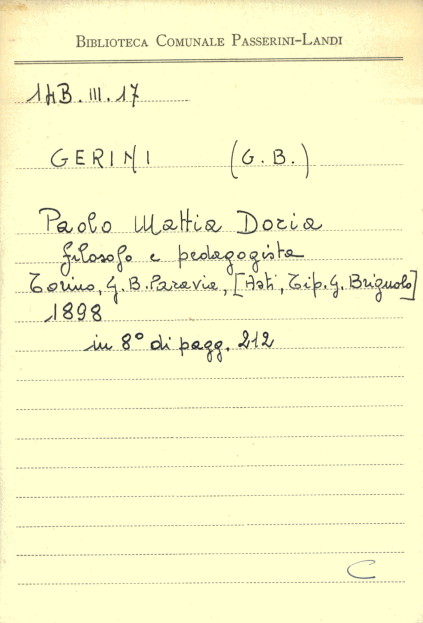 BIBLIOTECA COMUNALE PASSERINI-LANDI
14B.III.17
GERINI (G.B.)
Paolo Mattia Doria
filosofo e pedagogista
Torino, G.B. Paravia, [Asti, Tip. G. Brignolo]
1898
in 8° di pagg. 212
C